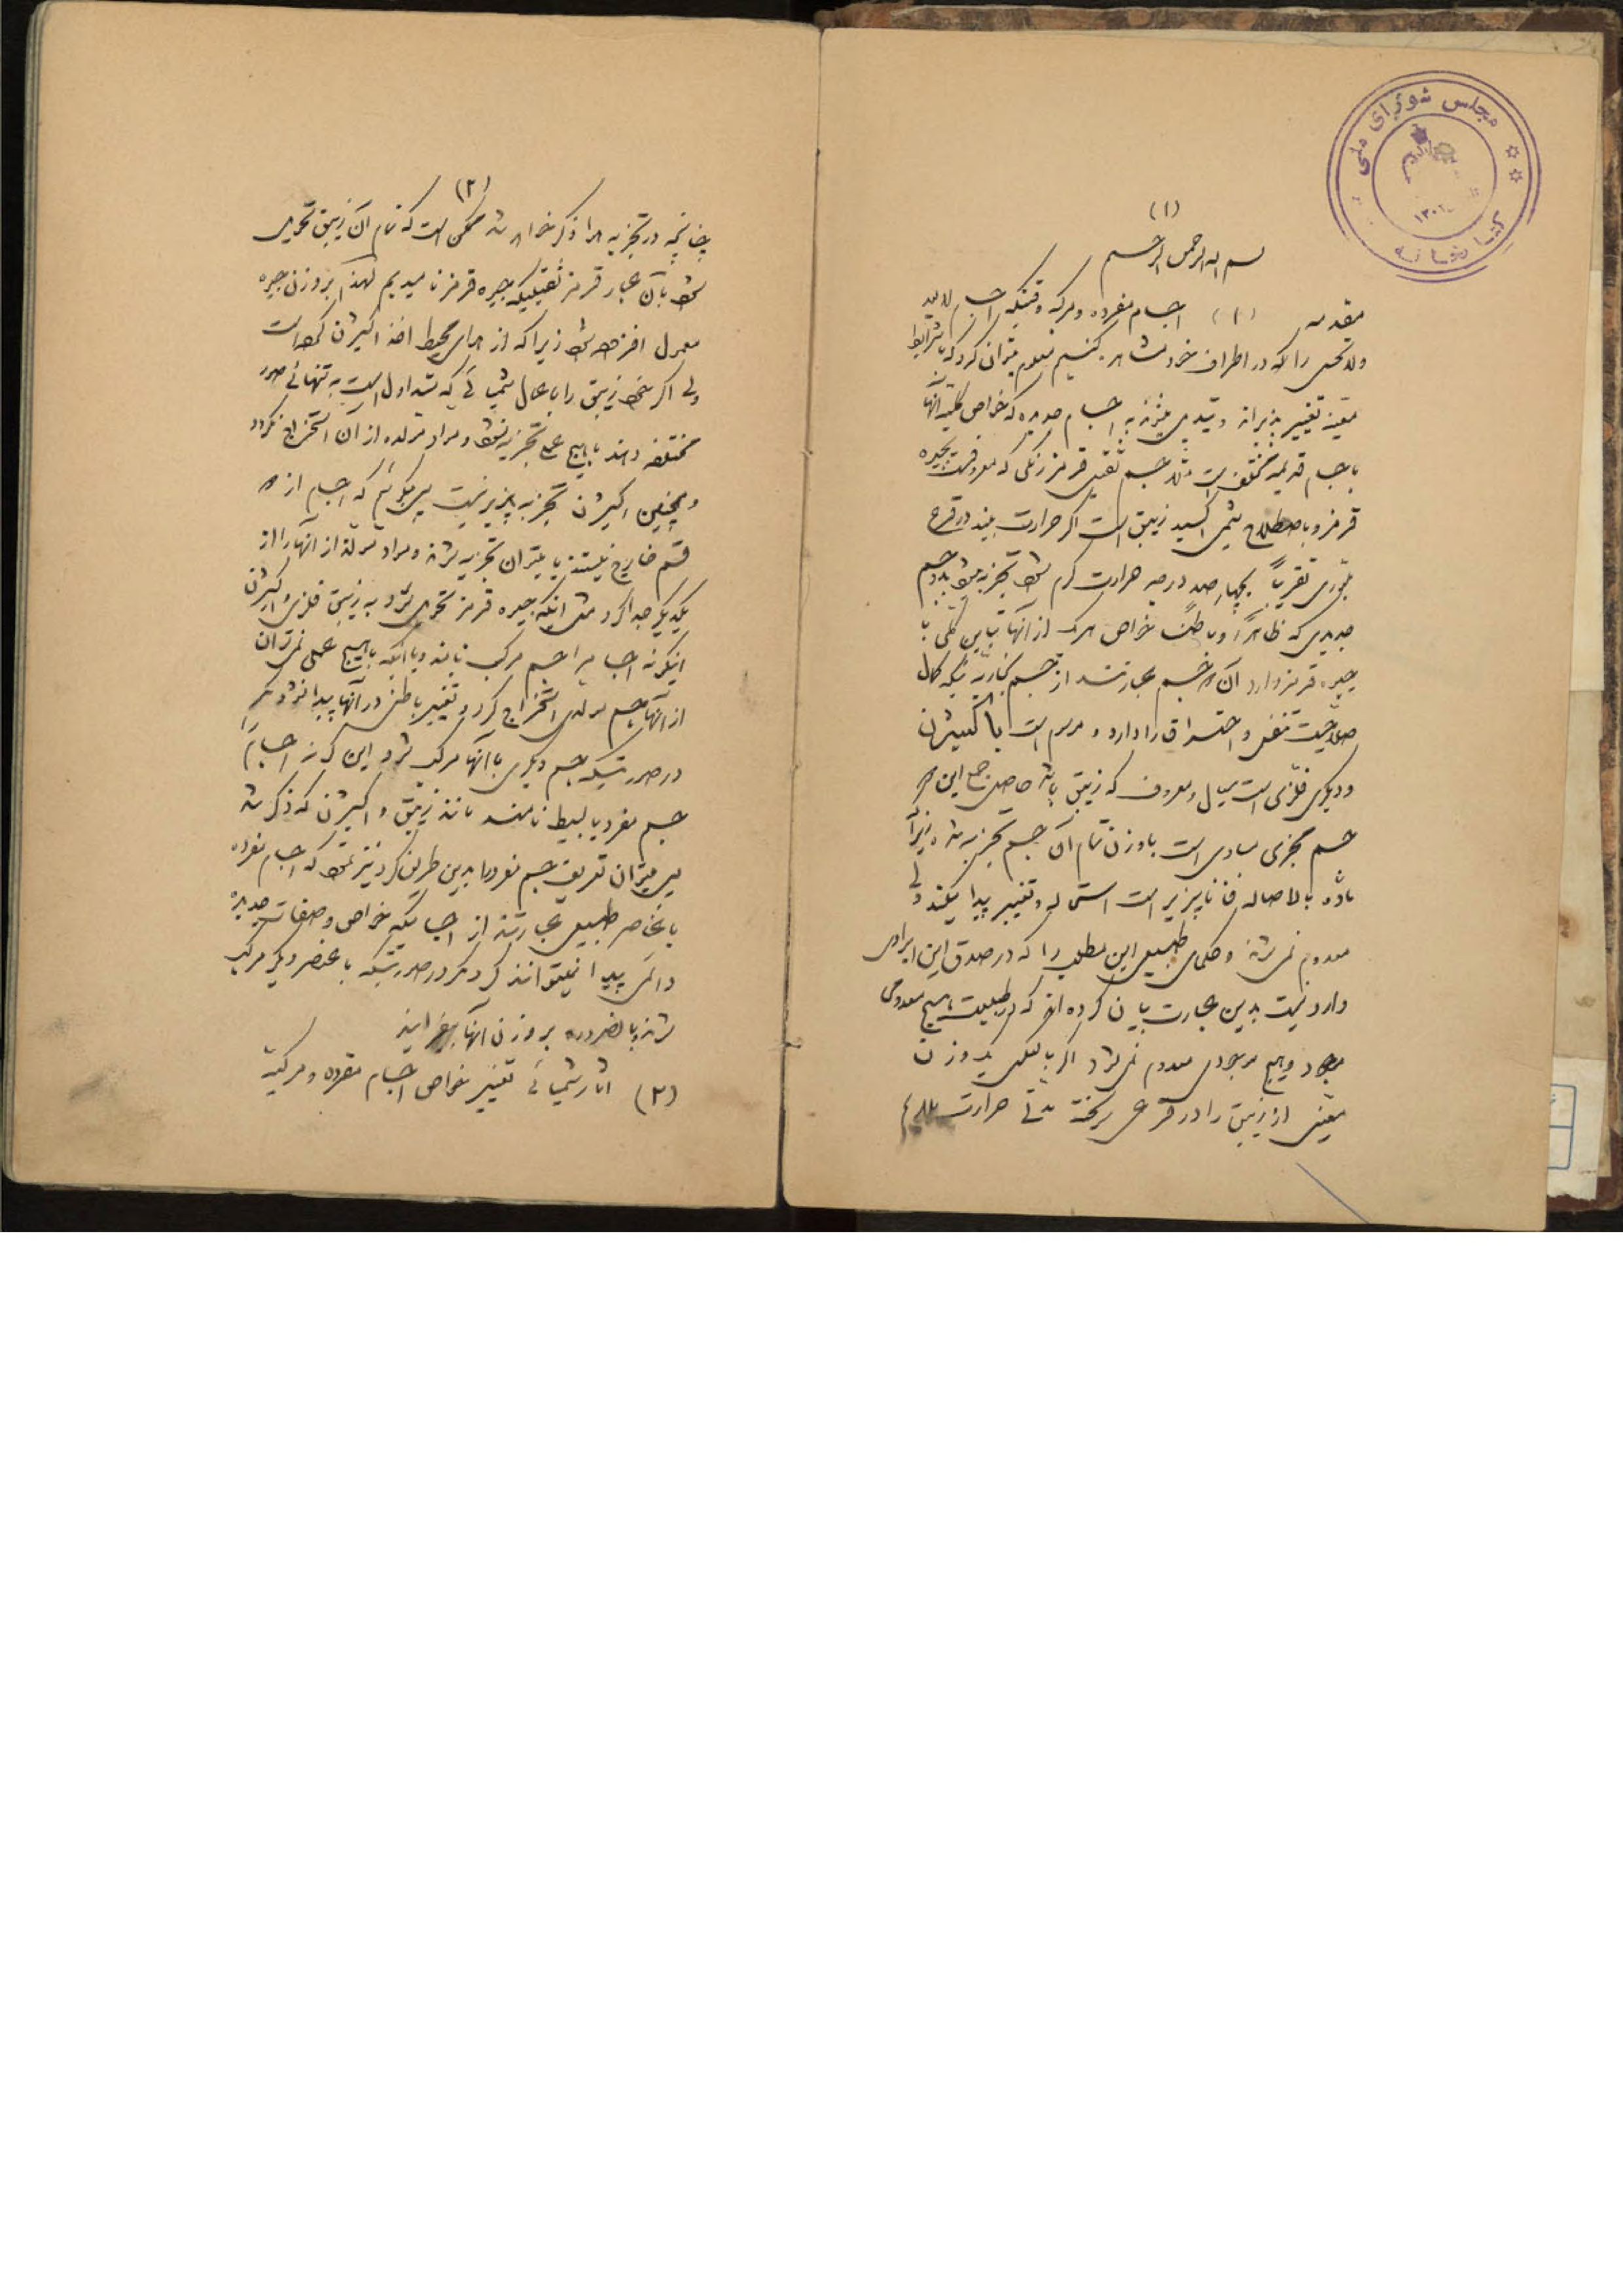 مجلس شورای ملی
کتابخانه
۱۳۰۲
(۱)
بسم الله الرحمن الرحیم
مقدمه (۱) اجسام مفرده و مرکبه وقتیکه اجسام
را که در اطراف خود مشاهده کنیم معلوم میتوان کرد که بشرایط
معینه تغییر پذیراند و تبدیل میشوند به اجسام جدیده که خواص کلیه آنها
با اجسام قدیمه مختلف است مثلا جسم ثقیل قرمز رنگی که معروفست بجیوه
قرمز و باصطلاح شیمی اکسید زیبق است اگر حرارت ببیند در قرع
بلوری تقریباً بچهارصد درجه حرارت گرم شود تجزیه میشود بدو جسم
جدیدی که ظاهراً و باطناً خواص هریک از آنها تباین کلی با
جیوه قرمز دارد آن دو جسم عبارتند از جسم بخاریه که کمال
صلاحیت تنفس و احتراق را دارد و موسوم است با کسیژن
و دیگری فلزی است سیال و معروف که زیبق باشد حاصل جمع این دو
جسم مجزی مساوی است با وزن تمام آن جسم تجزیه شده زیرا
ماده بالاصاله فنا ناپذیر است استحاله و تغییر پیدا میکند ولی
معدوم نمی شود و حکمای طبیعی این مطلب را که در صدق این ایرادی
وارد نیست بدین عبارت بیان کرده اند که در طبیعت هیچ معدومی
موجود و هیچ موجودی معدوم نمی شود اگر بالعکس یک وزن
معینی از زیبق را در قرعی ریخته مدتی حرارت دهیم
(۲)
چنانچه در تجزیه هوا ذکر خواهد شد ممکن است که تمام آن زیبق تحویل
شود بآن غبار قرمز ثقیلیکه جیوه قرمز نامیدیم لهذا بر وزن جیوه
معمول افزوده شود زیرا که از هوای محیط اخذ اکسیژن نموده است
ولی اگر خود زیبق را باعمال شیمیائی که متداول است به تنهائی صور
مختلفه دهند با هیچ عملی تجزیه نشود و مواد متولده از آن استخراج نگردد
و همچنین اکسیژن تجزیه پذیر نیست پس میگوئیم که اجسام از دو
قسم خارج نیستند یا میتوان تجزیه شوند و مواد متولده از آنها را از
یکدیگر جدا کرد مثل اینکه جیوه قرمز تحویل شود به زیبق فلزی و اکسیژن
اینگونه اجسام را جسم مرکب نامند و یا اینکه با هیچ عملی نمی توان
از آنها جسم متولدی استخراج کرد و تغییر باطنی در آنها پیدا نشود مگر
در صورتیکه جسم دیگری با آنها مرکب شود این گونه اجسام را
جسم مفرد یا بسیط نامند مانند زیبق و اکسیژن که ذکر شد
پس میتوان تعریف جسم مفرد را بدین طریق کرد نیز نمود که اجسام مفرده
یا عناصر طبیعی عبارتند از اجسامیکه خواص و صفات جدیده
دائمی پیدا نمیتوانند کرد مگر در صورتیکه با عنصر دیگر مرکب
شوند و بالضروره بر وزن آنها بیفزایند
(۲) آثار شیمیائی تغییر خواص اجسام مفرده و مرکبه